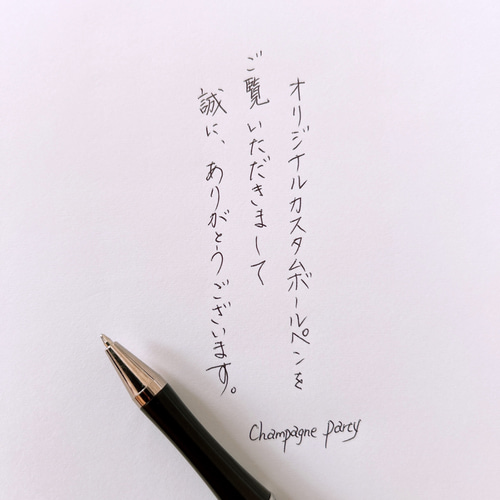 オリジナルカスタムボールペンを
ご覧いただきまして
誠に、ありがとうございます。
Champagne party